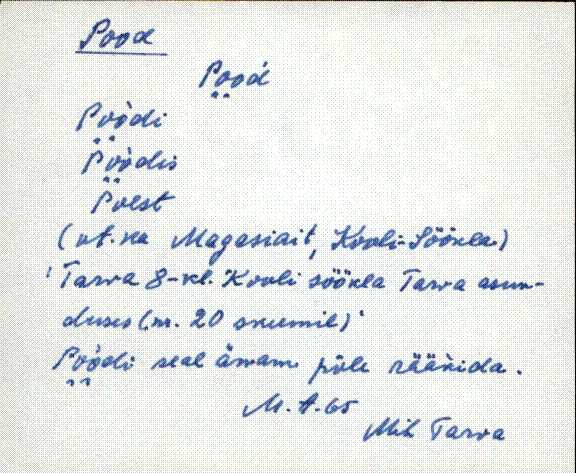 Pood
Pood´
Poòdi
Poòdis
Poest
(vt. ka Magasiait, Kooli-Söökla)
'Tarva 8-kl. Kooli söökla Tarva asun-
duses (nr. 20 skeemil)'
Poòdi seal ämam põle rääkida.
M. A. 65
Mih Tarva